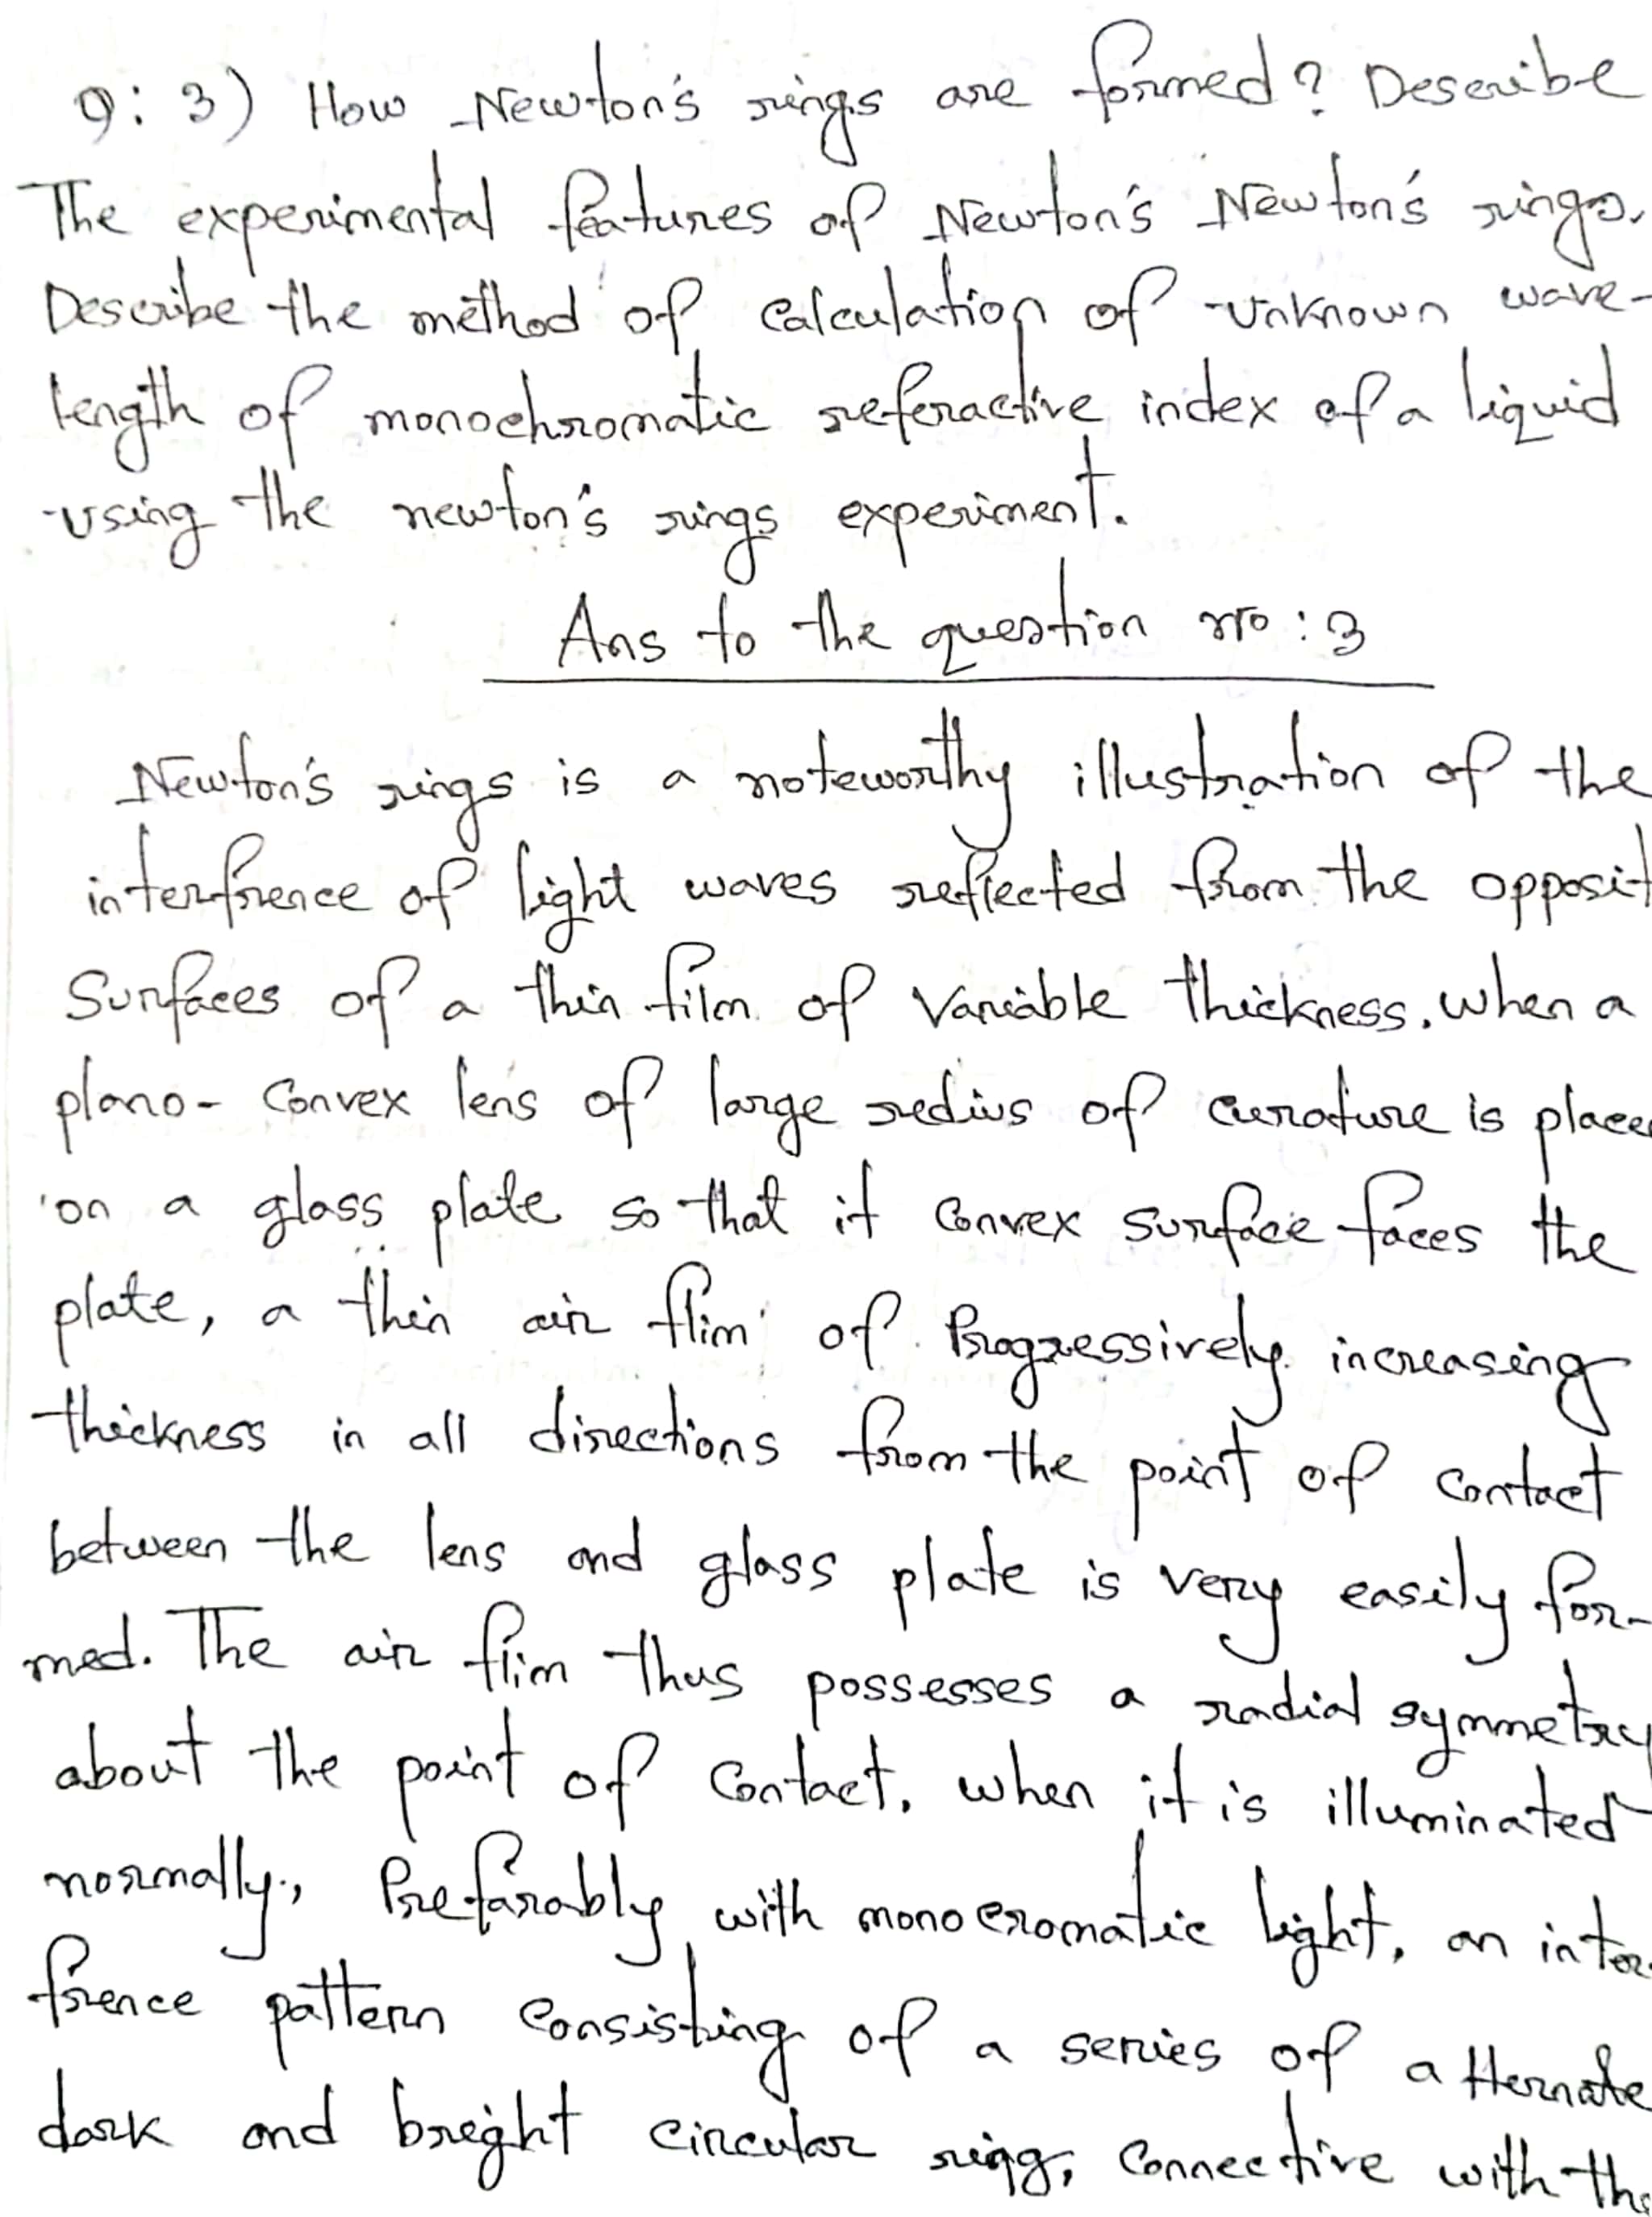 Q: 3) How Newton's rings are formed? Describe
The experimental features of Newton's Newton's rings.
Describe the method of calculation of unknown wave-
length of monochromatic referactive index of a liquid
using the newton's rings experiment.
Ans to the question no : 3
Newton's rings is a noteworthy illustration of the
interfrence of light waves reflected from the opposit
Surfaces of a thin film of Variable thickness. When a
plano- Convex lens of large redius of curature is place
on a glass plate so that it Convex surface faces the
plate, a thin air flim of Progressively increasing
thickness in all directions from the point of Contact
between the lens and glass plate is very easily for-
med. The air flim thus possesses a radial symmetry
about the point of Contact. when it is illuminated
normally, Prefarably with monocromatic light, an inter-
frence pattern Consisting of a series of alternate
dark and bright circular ring, Connective with the